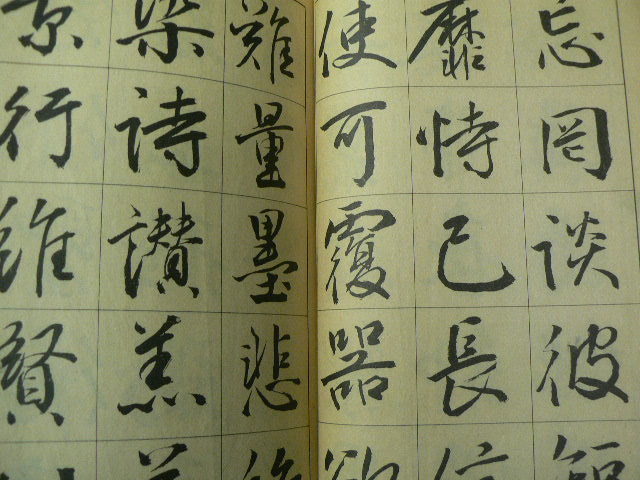 忘罔談彼短
靡恃己長信
使可覆器欲
難量墨悲絲
染詩讚羔羊
景行維賢